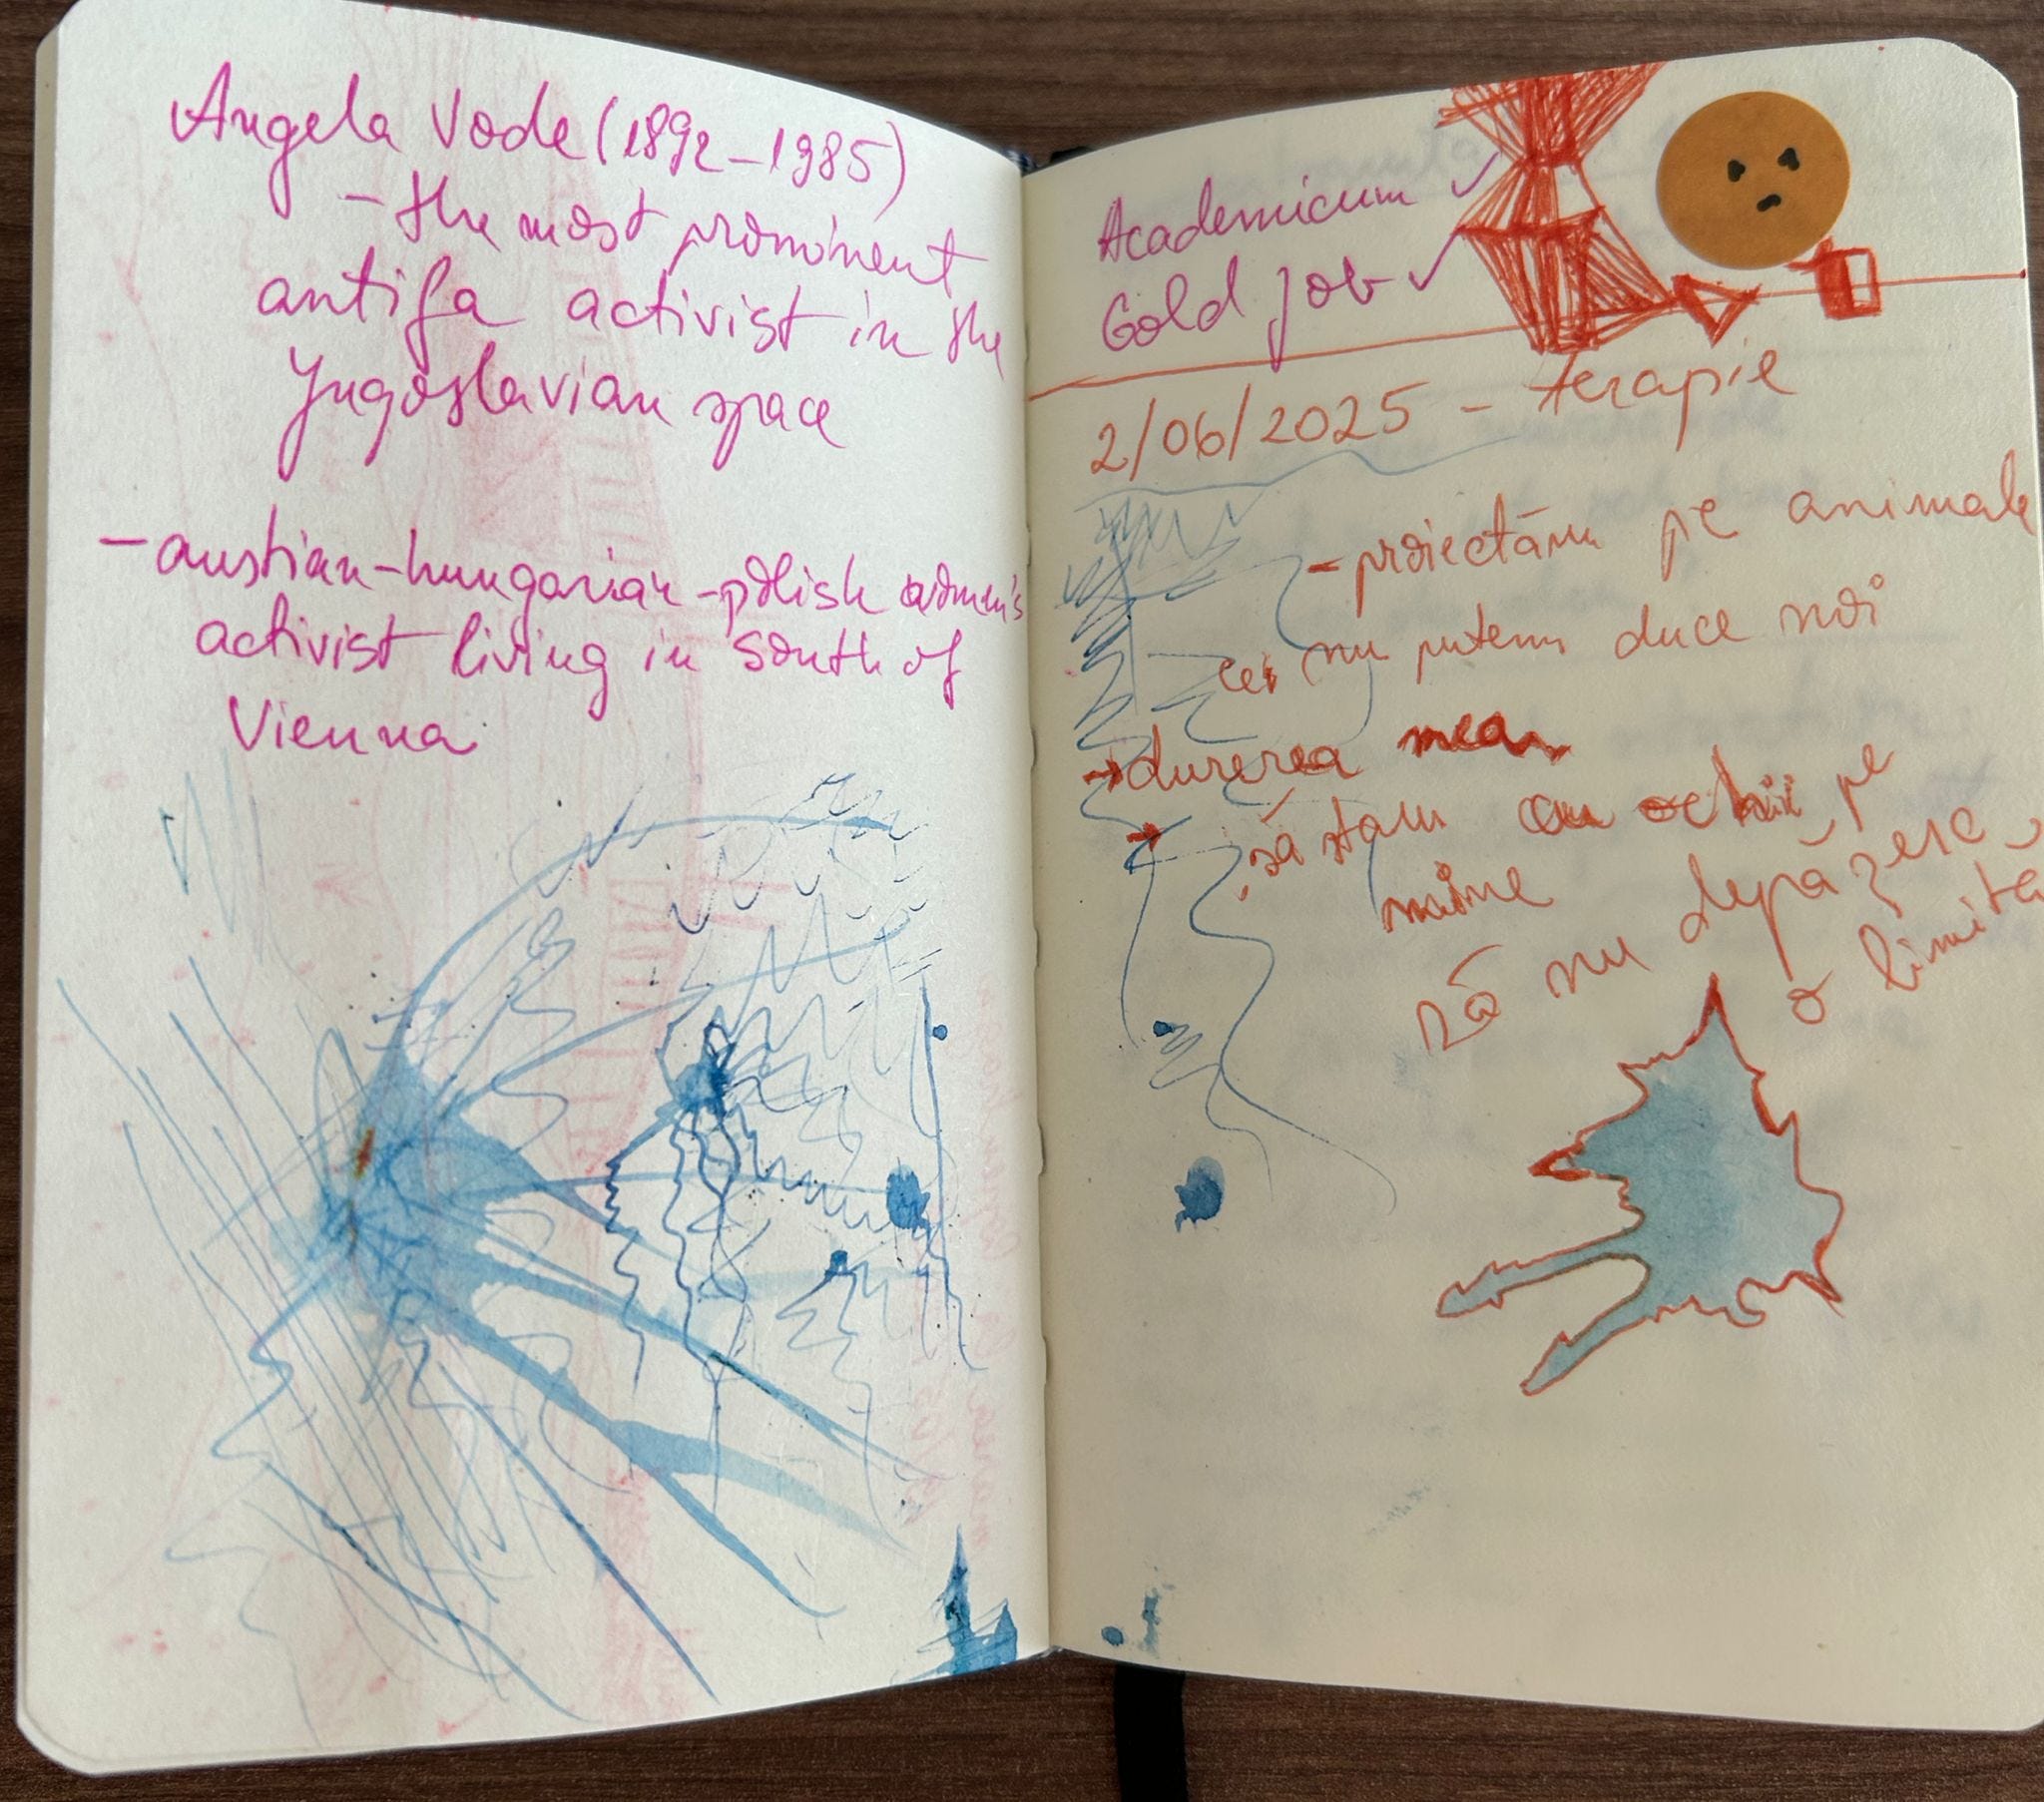 Angela Vode (1892-1985)
- the most prominent
antifa activist in the
Yugoslavian space
- austian-hungarian-polish women's
activist living in south of
Vienna
Academicum ✓
Gold job ✓
2/06/2025 - terapie
- proiectăm pe animale
ce nu putem duce noi
→ durerea mea
să stam cu ochii pe
mine
să nu depăzesc
o limita